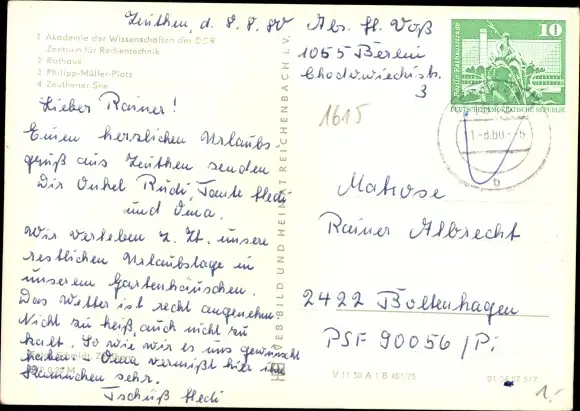 Zeuthen, d. 8.8.80
1 Akademie der Wissenschaften der DDR
Zentrum für Rechentechnik
2 Rathaus
3 Philipp-Müller-Platz
4 Zeuthener See
Lieber Rainer!
Einen herzlichen Urlaubs-
gruß aus Zeuthen senden
Dir Onkel Rudi, Tante Hedi
und Oma.
Wir verleben z. Zt. unsere
restlichen Urlaubstage in
unserem Gartenhäuschen.
Das Wetter ist recht angenehm.
Nicht zu heiß, auch nicht zu
kalt. So wie wir es uns gewünscht
haben. Oma vermißt hier ihr
Kaninchen sehr.
Tschüß Hedi
VEB BILD UND HEIMAT REICHENBACH i. V.
Abs. H. Voß
1055 Berlin
Chodowieckistr.
3
1615
10
Berlin, Rathausstraße
DEUTSCHE DEMOKRATISCHE REPUBLIK
-8.80.-
b
Matrose
Rainer Albrecht
2422 Boltenhagen
PSF 90056 / Pi
V 11 50 A 1 B 481/75
01 04 07 517
1,-